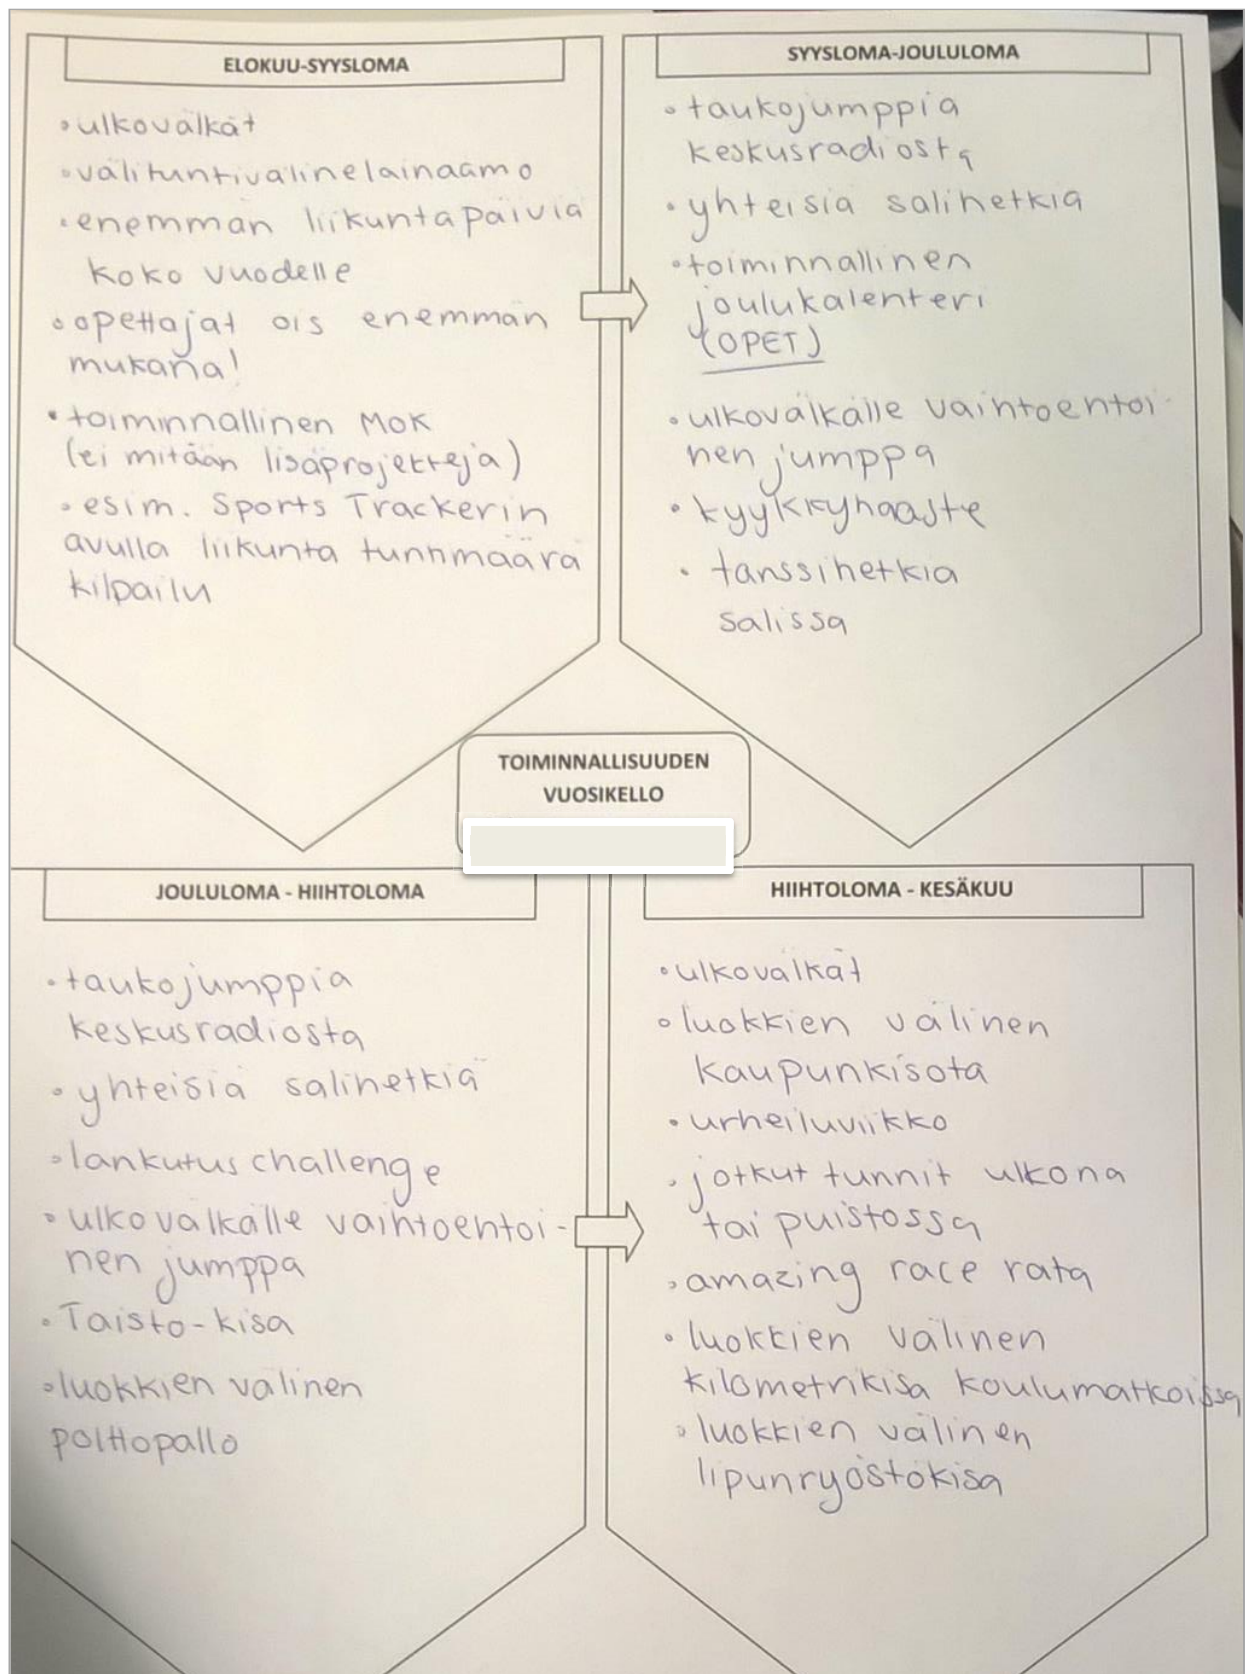 ELOKUU-SYYSLOMA
• ulkovälkät
• välituntivälinelainaamo
• enemmän liikuntapäiviä
koko vuodelle
• opettajat ois enemmän
mukana!
• toiminnallinen MOK
(ei mitään lisäprojekteja)
• esim. Sports Trackerin
avulla liikunta tuntimäärä
kilpailu
SYYSLOMA-JOULULOMA
• taukojumppia
keskusradiosta
• yhteisiä salihetkiä
• toiminnallinen
joulukalenteri
(OPET)
• ulkovälkälle vaihtoehtoi-
nen jumppa
• kyykkyhaaste
• tanssihetkiä
salissa
TOIMINNALLISUUDEN
VUOSIKELLO
JOULULOMA - HIIHTOLOMA
• taukojumppia
keskusradiosta
• yhteisiä salihetkiä
• lankutus challenge
• ulkovälkälle vaihtoehtoi-
nen jumppa
• Taisto-kisa
• luokkien välinen
polttopallo
HIIHTOLOMA - KESÄKUU
• ulkovälkät
• luokkien välinen
kaupunkisota
• urheiluviikko
• jotkut tunnit ulkona
tai puistossa
• amazing race rata
• luokkien välinen
kilometrikisa koulumatkoissa
• luokkien välinen
lipunryöstökisa